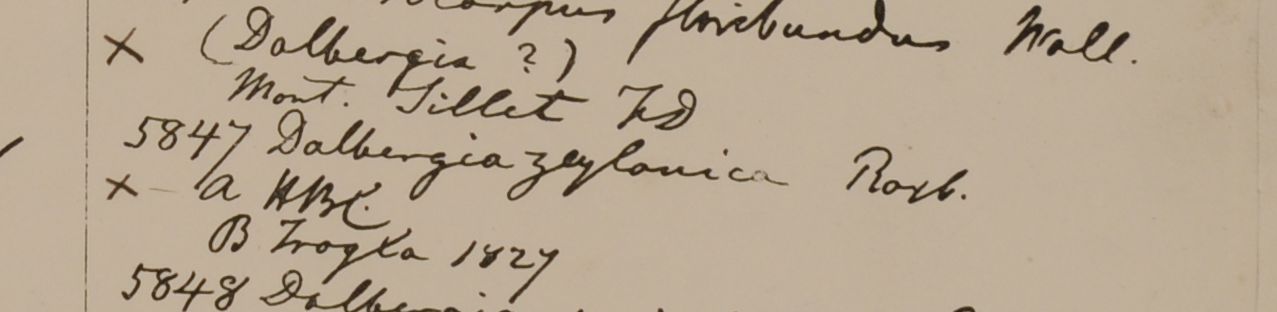 floribundus Wall.
× (Dalbergia ?)
Mont. Sillet FD
5847 Dalbergia zeylanica Roxb.
× - a HBC.
B 1827
5848